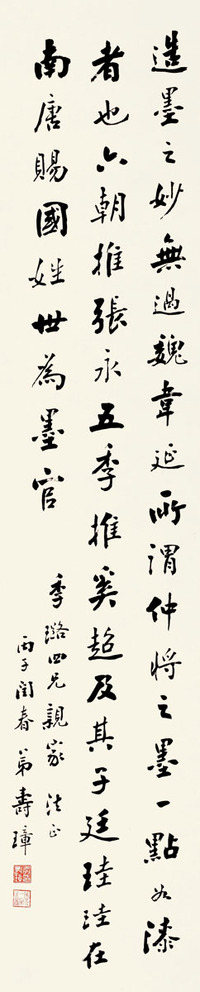 造墨之妙無過魏韋延所謂仲將之墨一點如漆
者也六朝推張永五季推奚超及其子廷珪珪在
南唐賜國姓世為墨官
季璐四兄親家法正
丙子閏春弟壽璋